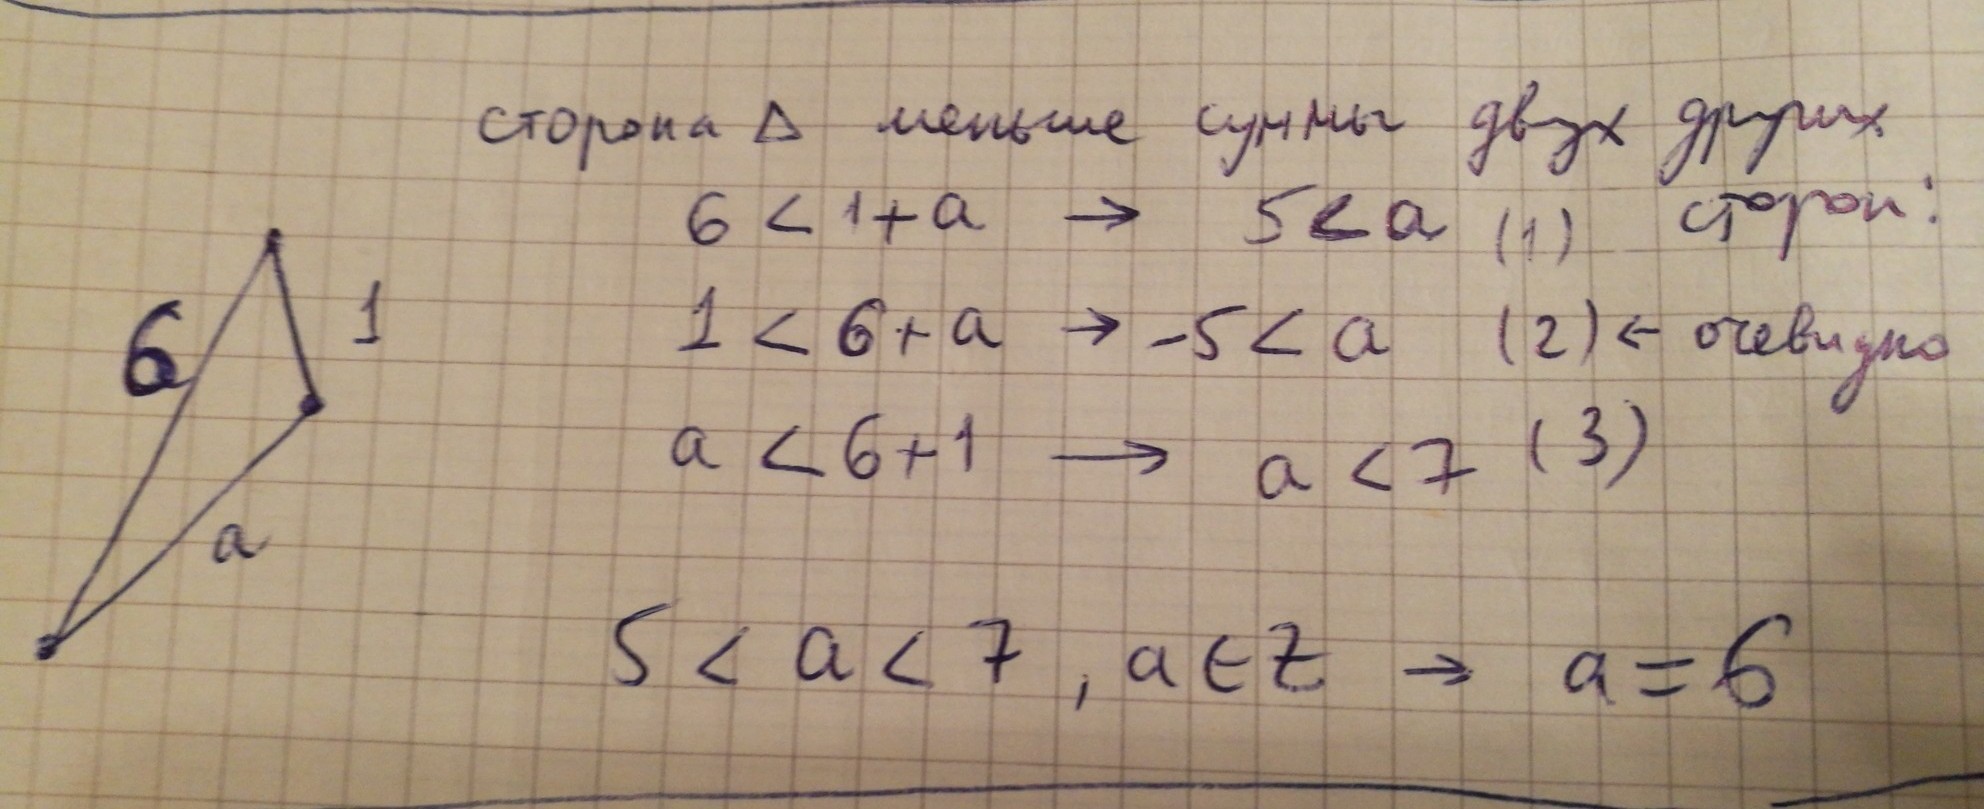 сторона Δ меньше суммы двух других
сторон:
6 < 1+a → 5 < a (1)
1 < 6+a → -5 < a (2) ← очевидно
a < 6+1 → a < 7 (3)
6
1
a
5 < a < 7, a ∈ Z → a = 6